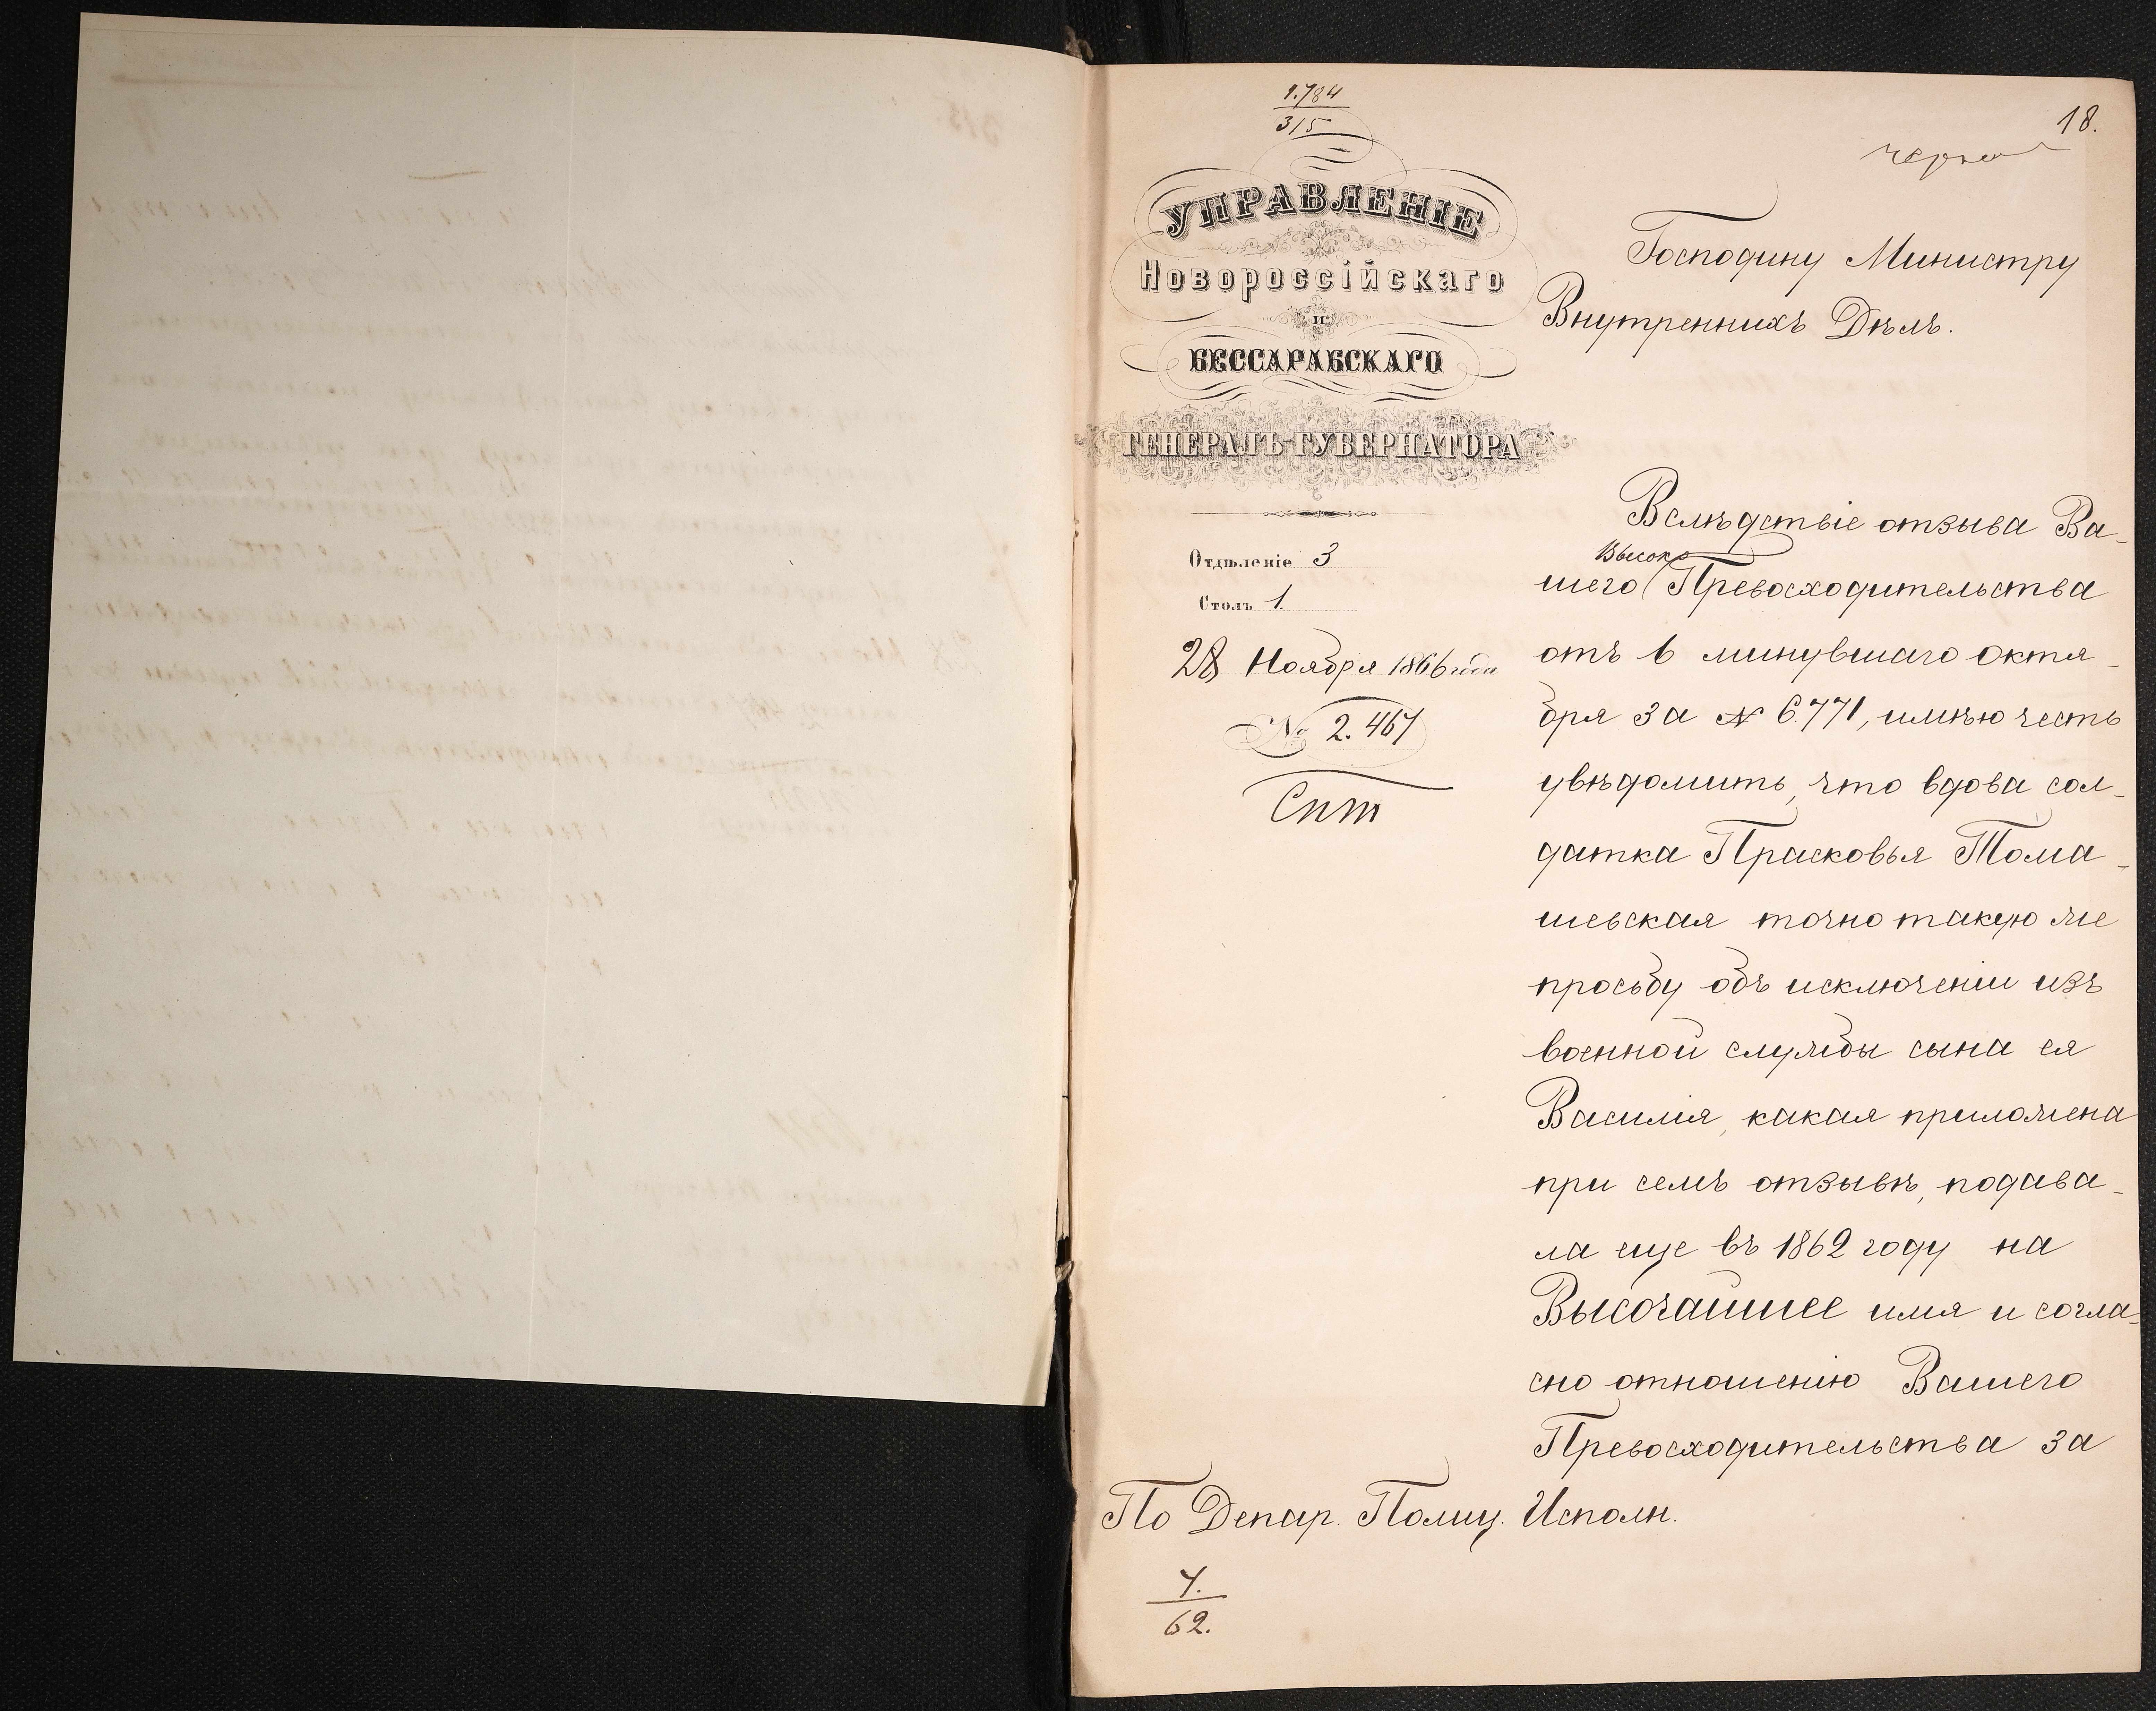 1.784
315
18.
УПРАВЛЕНІЕ
Новороссійскаго
и
БЕССАРАБСКАГО
ГЕНЕРАЛЪ-ГУБЕРНАТОРА
Отдѣленіе 3
Столъ 1.
28 Ноября 1866 года
№ 2.467
Господину Министру
Внутреннихъ Дѣлъ.
Вслѣдствіе отзыва Ва-
Высоко
шего Превосходительства
отъ 6 минувшаго октя-
бря за № 6.771, имѣю честь
увѣдомить, что вдова сол-
датка Прасковья Тома-
шевская точно такую же
просьбу объ исключеніи изъ
военной службы сына ея
Василія, какая приложена
при семъ отзывѣ, подава-
ла еще въ 1862 году на
Высочайшее имя и согла-
сно отношенію Вашего
Превосходительства за
По Депар. Полиц. Исполн.
7.
62.